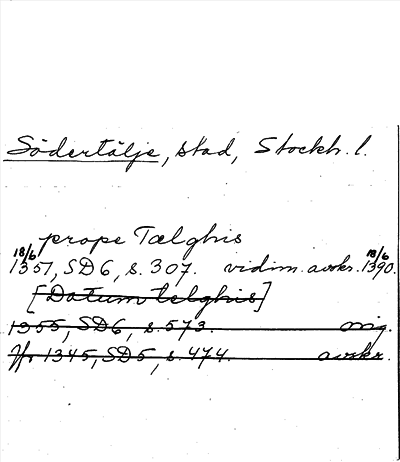 Södertälje, stad, Stockh. l.
prope Tælghis
18/6 1351, SD6, s. 307. vidim. avskr. 18/6 1390.
[Datum telghis]
1355, SD6, s. 573. orig.
Jfr 1345, SD5, s. 474. avskr.